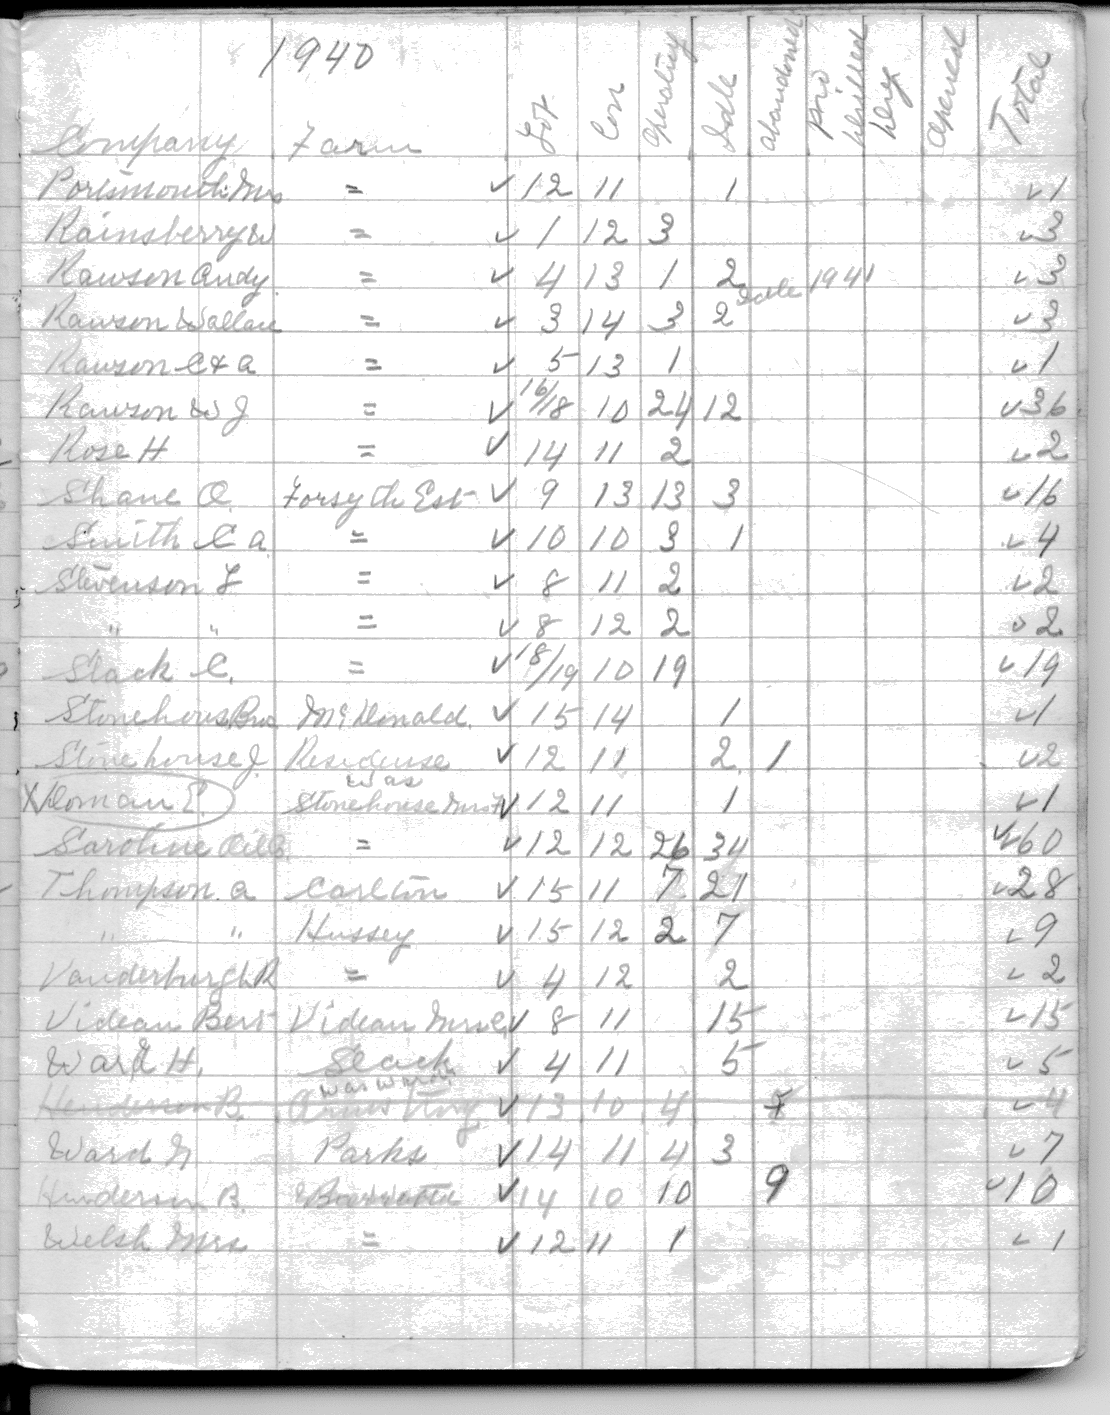 1940
Company Farm Lot Con Operating Idle abandoned prio drilled deep opened Total
Portsmouth Mrs = ✓ 12 11 1 ✓1
Rainsberry W = ✓ 1 12 3 ✓3
Rawson Andy = ✓ 4 13 1 2 ✓3
Idle 1941
Rawson Wallace = ✓ 3 14 3 2 ✓3
Rawson C & A = ✓ 5 13 1 ✓1
Rawson W J = ✓ 16/18 10 24 12 ✓36
Rose H = ✓ 14 11 2 ✓2
Shane O. Forsyth Est ✓ 9 13 13 3 ✓16
Smith C a = ✓ 10 10 3 1 ✓4
Stevenson F = ✓ 8 11 2 ✓2
" " = ✓ 8 12 2 ✓2
Slack C. = ✓ 18/19 10 19 ✓19
Stonehous Bros McDonald. ✓ 15 14 1 ✓1
Stonehouse J. Residense ✓ 12 11 2 1 ✓2
was
X Doman E. Stonehouse Mrs ✓ 12 11 1 ✓1
Saroline Oil = ✓ 12 12 26 34 ✓60
Thompson. a Carlton ✓ 15 11 7 21 ✓28
" " Hussey ✓ 15 12 2 7 ✓9
Vanderburgh R = ✓ 4 12 2 ✓2
Videan Bert Videan Mrs C. ✓ 8 11 15 ✓15
Ward H. Slack ✓ 4 11 5 ✓5
was Ward
Henderson B. Armstrong ✓ 13 10 4 ✓4
Ward Parks ✓ 14 11 4 3 ✓7
Henderson B. ✓ 14 10 10 9 ✓10
Welsh Mrs = ✓ 12 11 1 ✓1